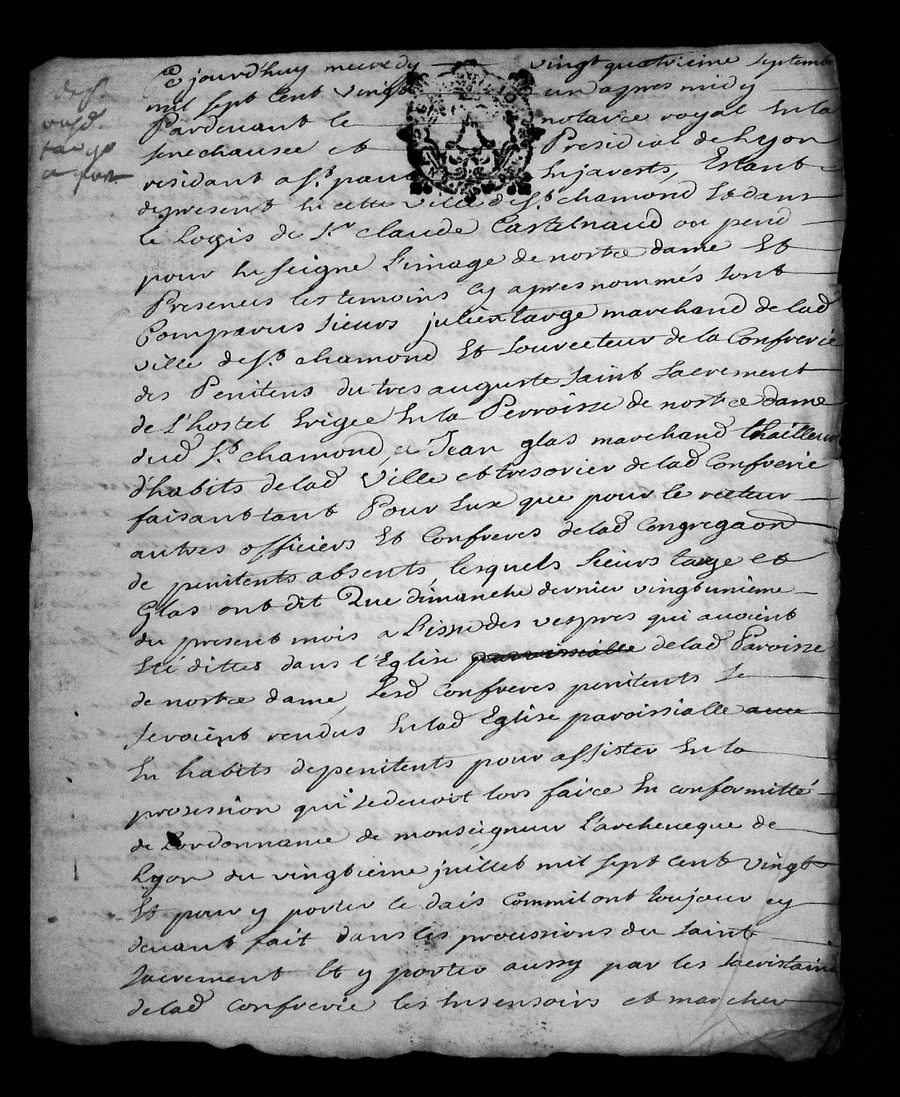 Ce jourd'huy mecredy vingt quatrieme septembre
mil sept cent vingt un apres midy
Pardevant le notaire royal En la
senechausée et Presidial de Lyon
residant a St. paul En jarests, Estant
depresent En cette ville de St. chamond Et dans
le Logis de Sr claude Castelnaud ou pend
pour Enseigne L'image de nostre dame Et
Presences les temoins Cy apres nommés sont
Comparus sieurs julien targe marchand de lad
ville de St. chamond Et souvecteur de la Confrerie
des Penitens du tres auguste saint sacrement
de l'hostel Erigée En la Perroisse de nostre dame
dud St. chamond, & Jean glas marchand thailleur
d'habits de lad Ville et tresorier de lad Confrerie
faisant tant Pour Eux que pour le recteur
autres officiers Et Confreres de lad Congregaon
de penitents absents, lesquels sieurs targe et
Glas ont dit Que dimanche dernier vingtunieme
du present mois a L'issue des vespres qui avoient
Eté dittes dans l'Eglise de lad Paroisse
de nostre dame, Lesd Confreres penitents se
seroient rendus En lad Eglise paroissialle
En habits de penitents pour assister En la
prosession qui se devoit lors faire En conformitté
de L'ordonnance de monseigneur L'archeveque de
Lyon du vingtieme juillet mil sept cent vingt
Et pour y porter le dais Comm'il ont toujour cy
devant fait dans les processions du saint
sacrement Et y porter aussy par les sacristains
de lad confrerie les Ensensoirs et marcher